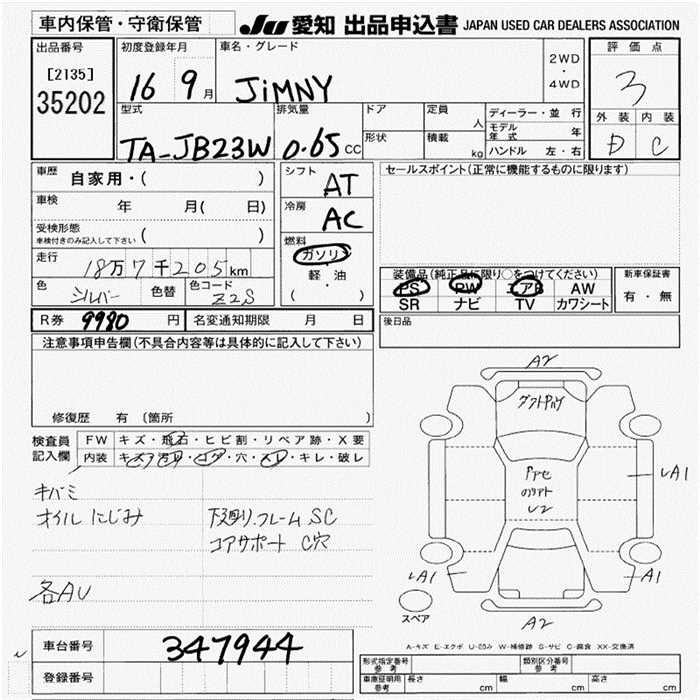 車内保管・守衛保管 JU 愛知 出品申込書 JAPAN USED CAR DEALERS ASSOCIATION
出品番号 初度登録年月 車名・グレード 2WD・4WD 評価点
[2135]
35202 16 9月 JiMNY 3
型式 排気量 ドア 定員 人 ディーラー・並行 外装 内装
形状 積載 kg モデル年式 年
TA-JB23W 0.65cc ハンドル 左・右 D C
車歴 自家用・( ) シフト AT セールスポイント(正常に機能するものに限ります)
車検 年 月( 日) 冷房 AC
受検形態 ( )
車検付きのみ記入して下さい
燃料 ガソリン
走行 18万7千205km 軽・油
( )
装備品(純正品に限り○をつけてください) 新車保証書
PS PW エアB AW 有・無
SR ナビ TV カワシート
色 シルバー 色替 色コード Z2S
R券 9980 円 名変通知期限 月 日 後日品
注意事項申告欄(不具合内容等は具体的に記入して下さい)
修復歴 有 (箇所 )
検査員記入欄 FW キズ・飛石・ヒビ割・リペア跡・X要
内装 キズ・汚れ・コゲ・穴・スレ・キレ・破レ
キバミ
オイルにじみ 下廻り.フレームSC
コアサポート C穴
各AU
A2
Pアセ
U2
LA1
LA1
A1
スペア
A2
A-キズ E-エクボ U-凹み W-補修跡 S-サビ C-腐食 XX-交換済
車台番号 347944
登録番号
形式指定番号 参考 類別区分番号 参考
車庫証明用 参考 長さ cm 幅 cm 高さ cm